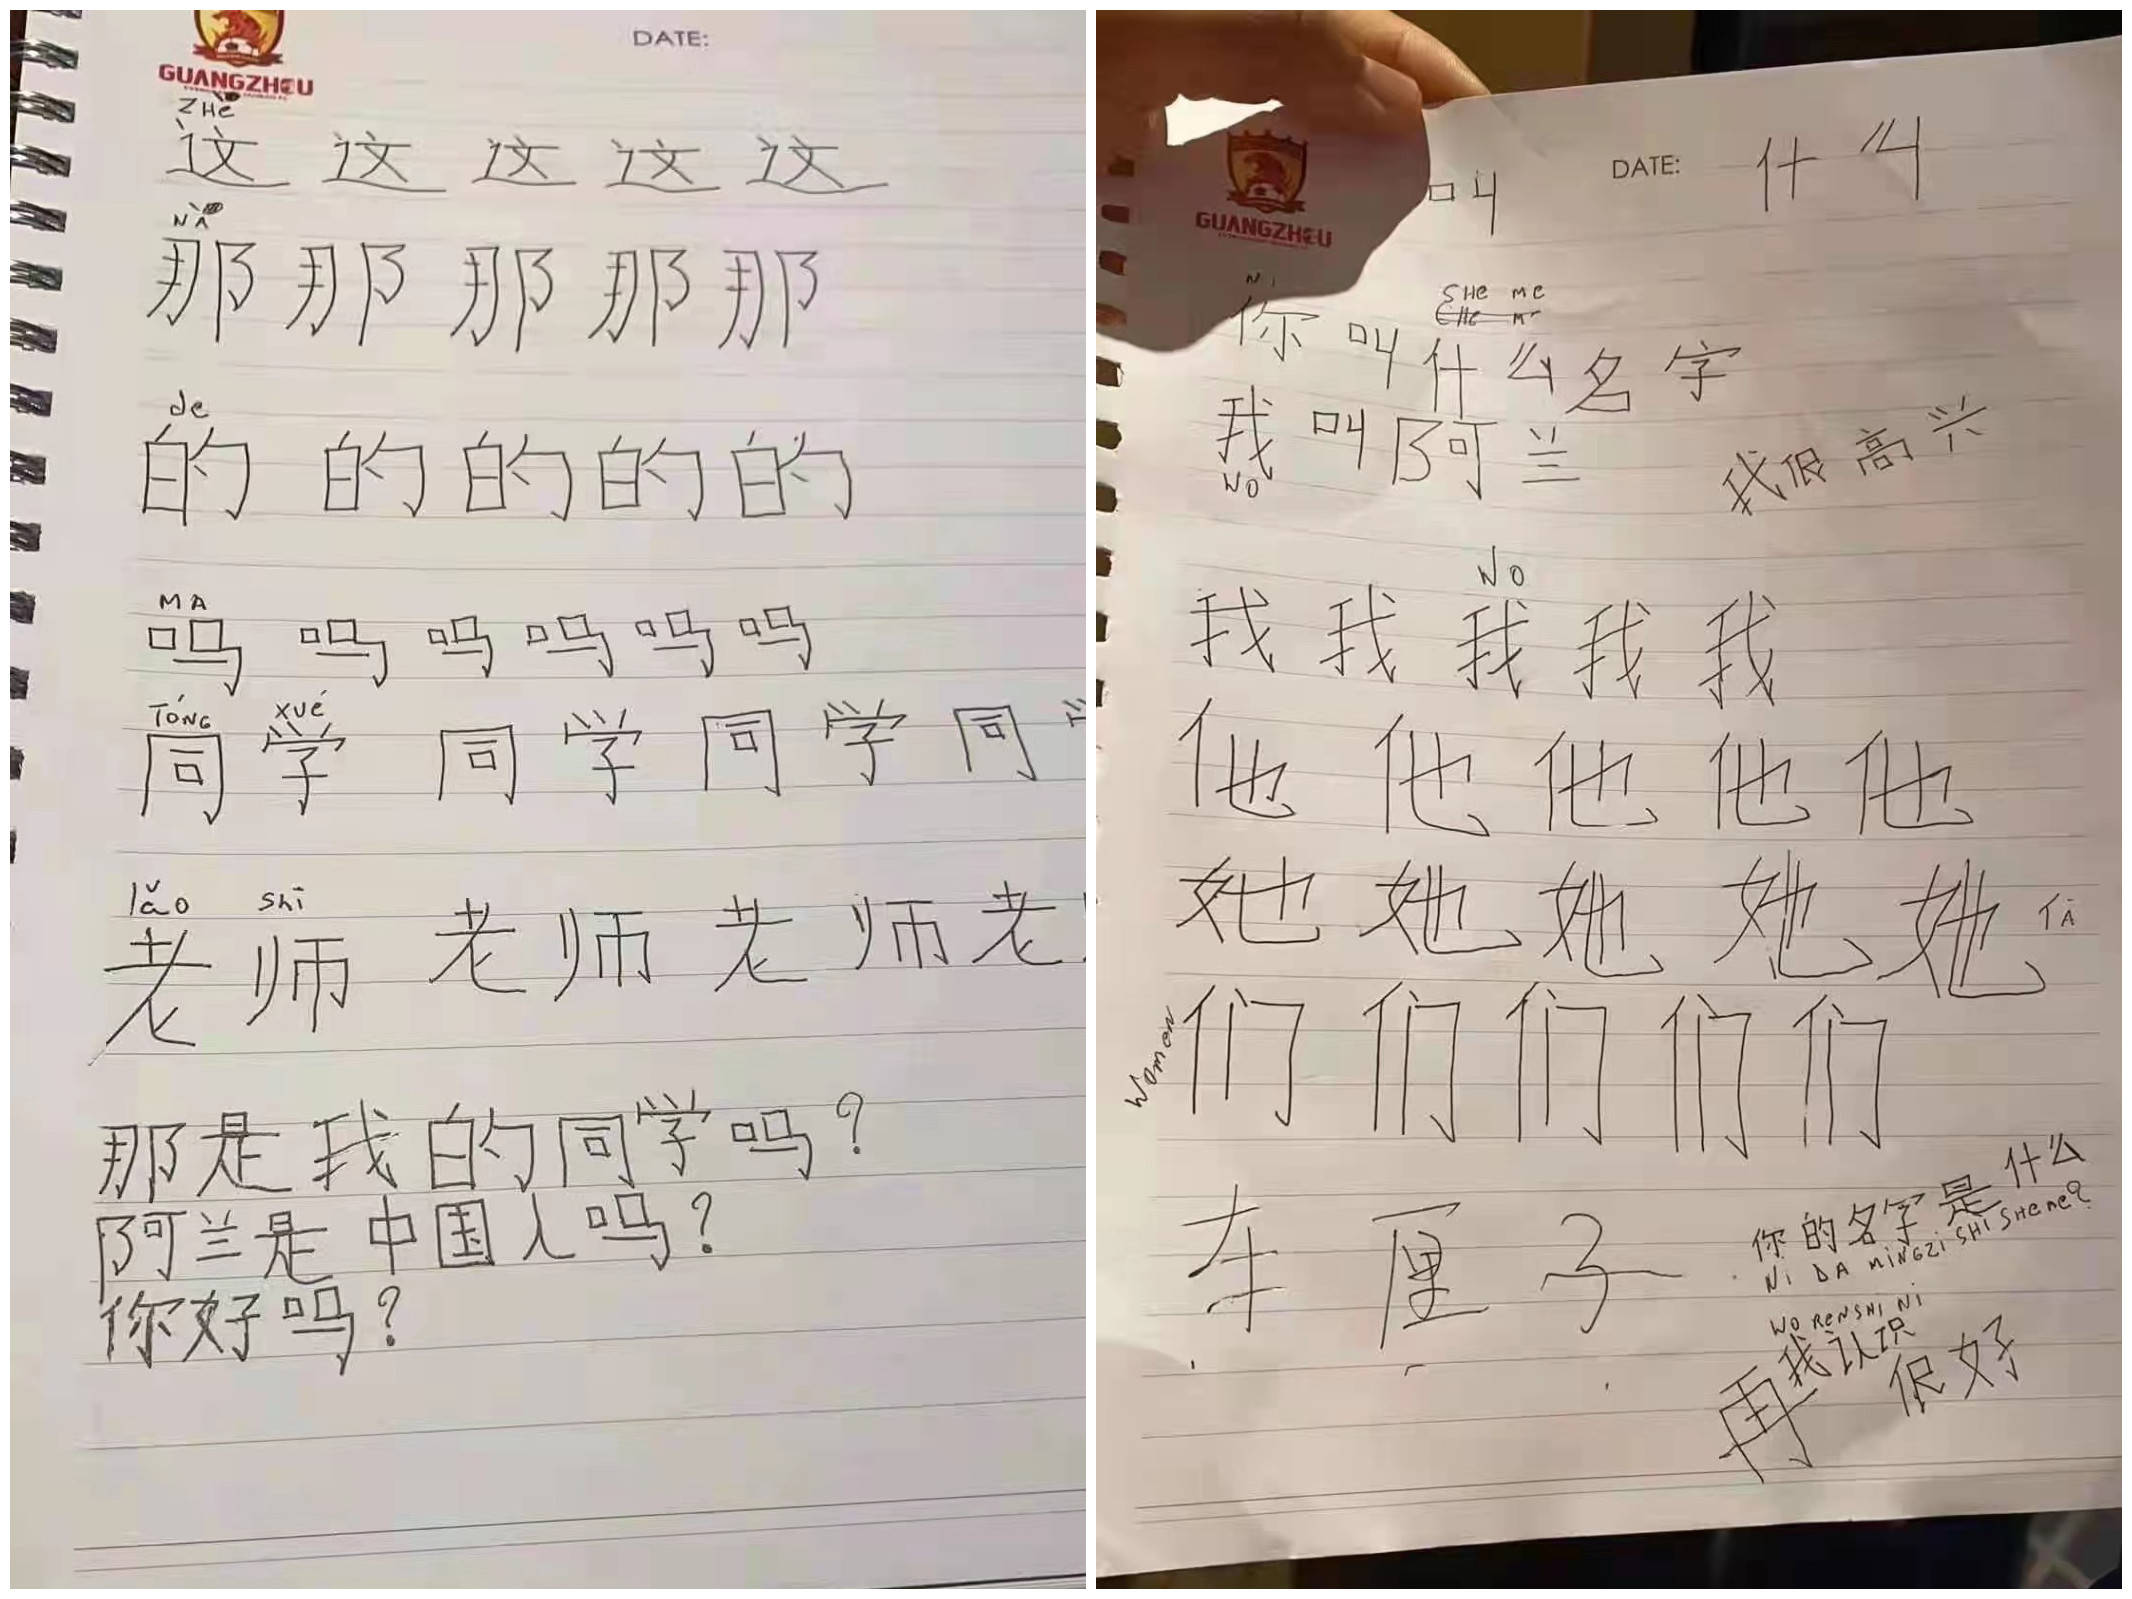 GUANGZHOU
DATE:
ZHè
这 这 这 这 这
NÀ
那 那 那 那 那
de
的 的 的 的 的
MA
吗 吗 吗 吗 吗 吗
TÓNG xué
同 学 同 学 同 学 同
lǎo shī
老 师 老 师 老 师 老
那是我的同学吗?
阿兰是中国人吗?
你好吗?
DATE: 什么
GUANGZHOU
叫
Ni SHe me
你叫什么名字
我叫阿兰
WO
我很高兴
WO
我 我 我 我 我
他 他 他 他 他
她 她 她 她 她 TĀ
women
们 们 们 们 们
车 厘 子
你的名字是什么
Ni DA MiNGZi SHi SHeMe?
WO RENSHI Ni
我认识
再 很好